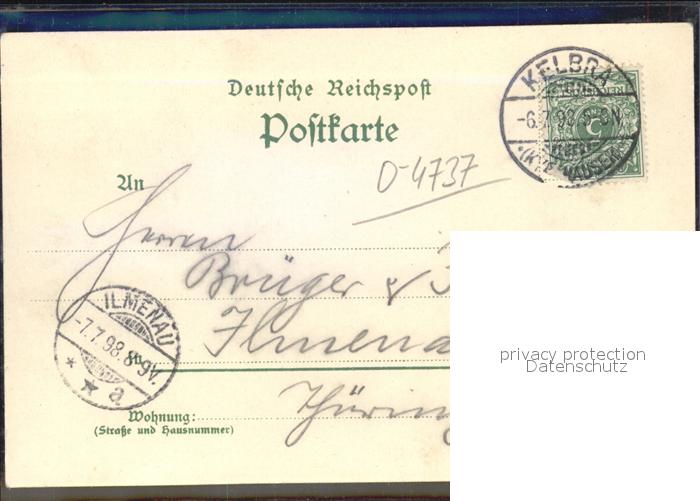 Deutsche Reichspost
Postkarte
KELBRA
-6.7.98.
(KYFFHÄUSER)
O-4737
An
Herren
Brüger &
Ilmena
ILMENAU
-7.7.98.8-9V.
* * a
In
Thürin
Wohnung:
(Straße und Hausnummer)
privacy protection
Datenschutz